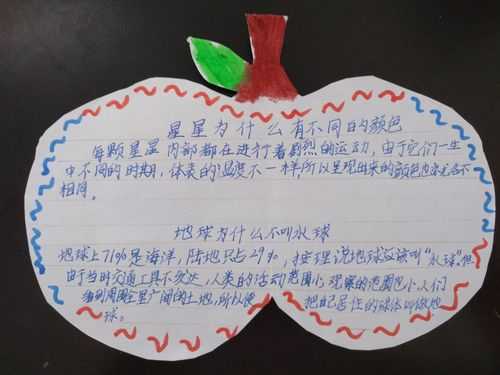 星星为什么有不同的颜色
每颗星星内部都在进行着剧烈的运动，由于它们一生
中不同的时期，体表的温度不一样所以呈现出来的颜色也亦各不
相同。
地球为什么不叫水球
地球上71%是海洋，陆地只占29%，按理说地球应该叫“水球”。但
由于当时交通工具不发达，人类的活动范围小观察的范围也小人们
看到周围全是广阔的土地，所以便把自己居住的球体叫做地
球。